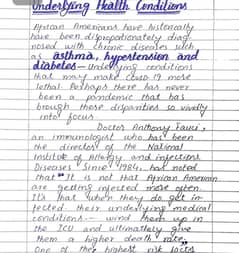 Underlying Health Conditions
African Americans have historically
have been disproportionately diag-
nosed with chronic diseases such
as asthma, hypertension and
diabetes - underlying conditions
that may make covid 19 more
lethal. Perhaps there has never
been a pandemic that has
brough these disparities so vividly
into focus
Doctor Anthony Fauci,
an immunologist who has been
the director of the National
Institute of Allergy and infectious
Diseases Since 1984, has noted
that "It is not that African American
are getting infected more often.
It's that when they do get in-
fected. their underlying medical
conditions - wind them up in
the ICU and ultimatley give
them a higher death rate."
One of the highest risk